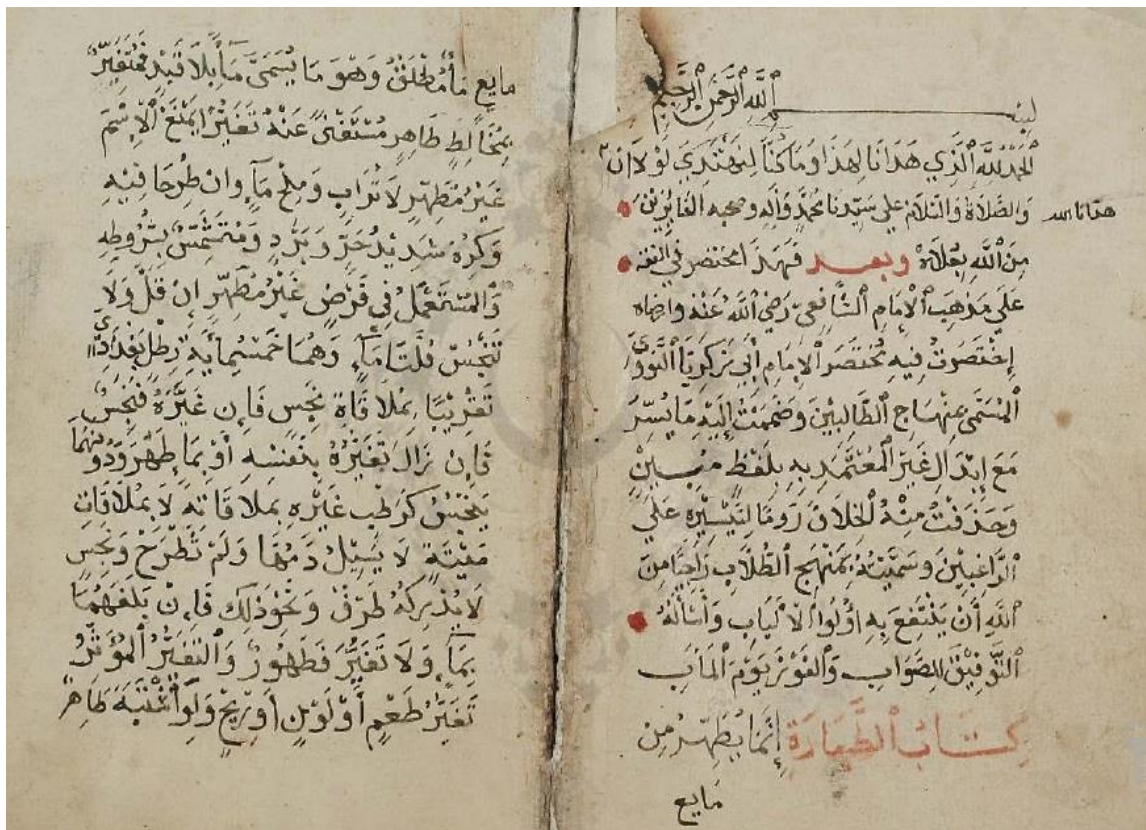 بسم الله الرحمن الرحيم
الحمد لله الذي هدانا لهذا وما كنا لنهتدي لولا ان
هدانا الله
والصلاة والسلام علي سيدنا محمد واله وصحبه الفايزين
من الله بعلاه وبعد فهذا مختصر في الفقه
علي مذهب الإمام الشافعي رضي الله عنه وارضاه
إختصرت فيه مختصر الإمام أبي زكريا النووي
المسمى بمنهاج الطالبين وضممت إليه ما يسر
مع إبدال غير المعتمد به بلفظ مبين
وحذفت منه الخلاف روما لتيسيره علي
الراغبين وسميته بمنهج الطلاب راجيا من
الله أن ينتفع به أولوا الألباب وأسأله
التوفيق للصواب والفوز يوم المأب
كتاب الطهارة إنما يطهر من
مايع
مايع مأ مطلق وهو ما يسمى مأ بلا قيد فمتغير
بمخالط طاهر مستغنى عنه تغيرا يمنع الإسم
غير مطهر لا تراب وملح مآء وان طرحا فيه
وكره شديد حر وبرد ومتشمس بشروطه
والمستعمل في فرض غير مطهر إن قل ولا
تنجس قلتا مآء وهما خمسمأية رطل بغدادي
تقريبا بملاقاة نجس فإن غيره فنجس
فإن زال تغيره بنفسه أو بمآء طهر ودونهما
ينجس كرطب غيره بملاقاته لا بملاقات
ميتة لا يسيل دمها ولم تطرح ونجس
لا يدركه طرف ونحو ذلك فإن بلغهما
بمآء ولا تغير فطهور والتغير المؤثر
تغير طعم أو لون أو ريح ولو أشتبه طاهر